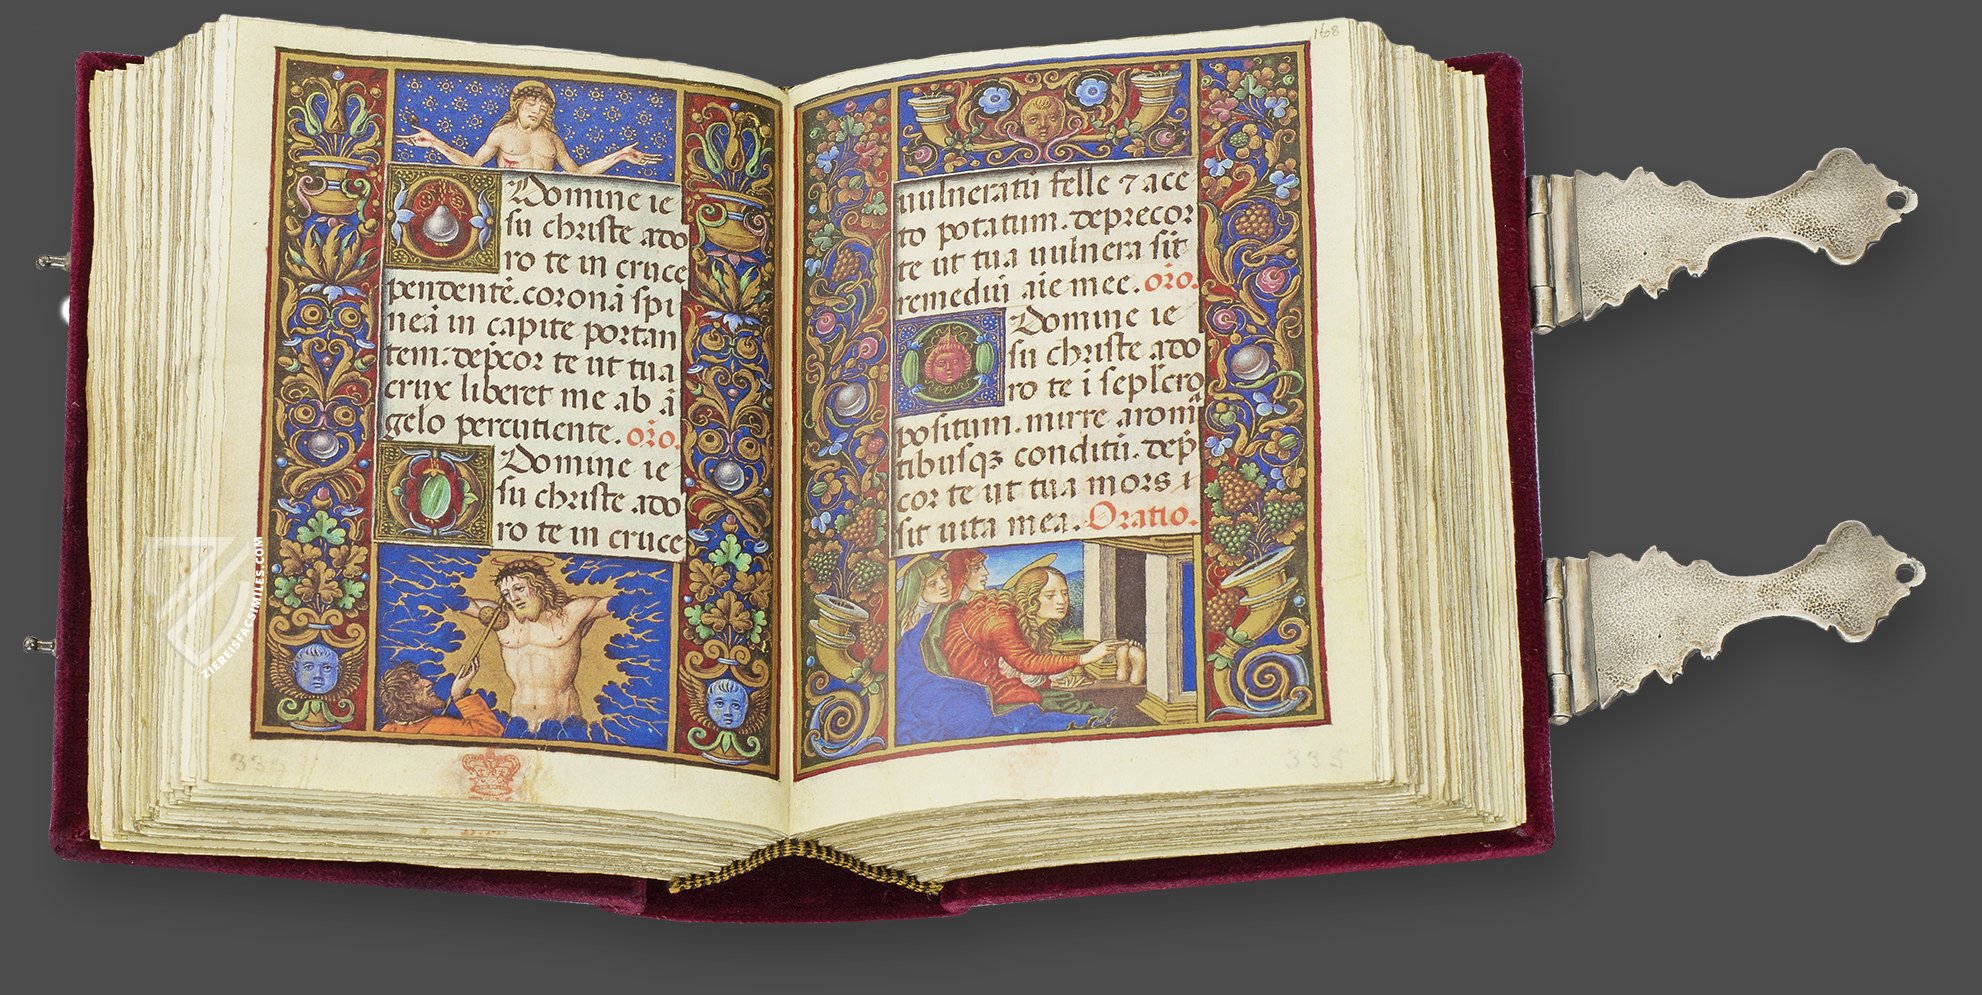 Domine ie
su christe ado
ro te in cruce
pendentē. coronā spi
neā in capite portan
tem. dep̄cor te ut tua
crux liberet me ab ā
gelo percutiente. or̄o.
Domine ie
su christe ado
ro te in cruce
335
ZIEREISFACSIMILES.COM
168
vulneratū felle ⁊ ace
to potatum. deprecor
te ut tua vulnera sīt
remediū aīe mee. or̄o.
Domine ie
su christe ado
ro te ī sepl̄cro
positum. mirre aromā
tibusqꝫ conditū. dep̄
cor te ut tua mors
sit vita mea. Oratio.
335